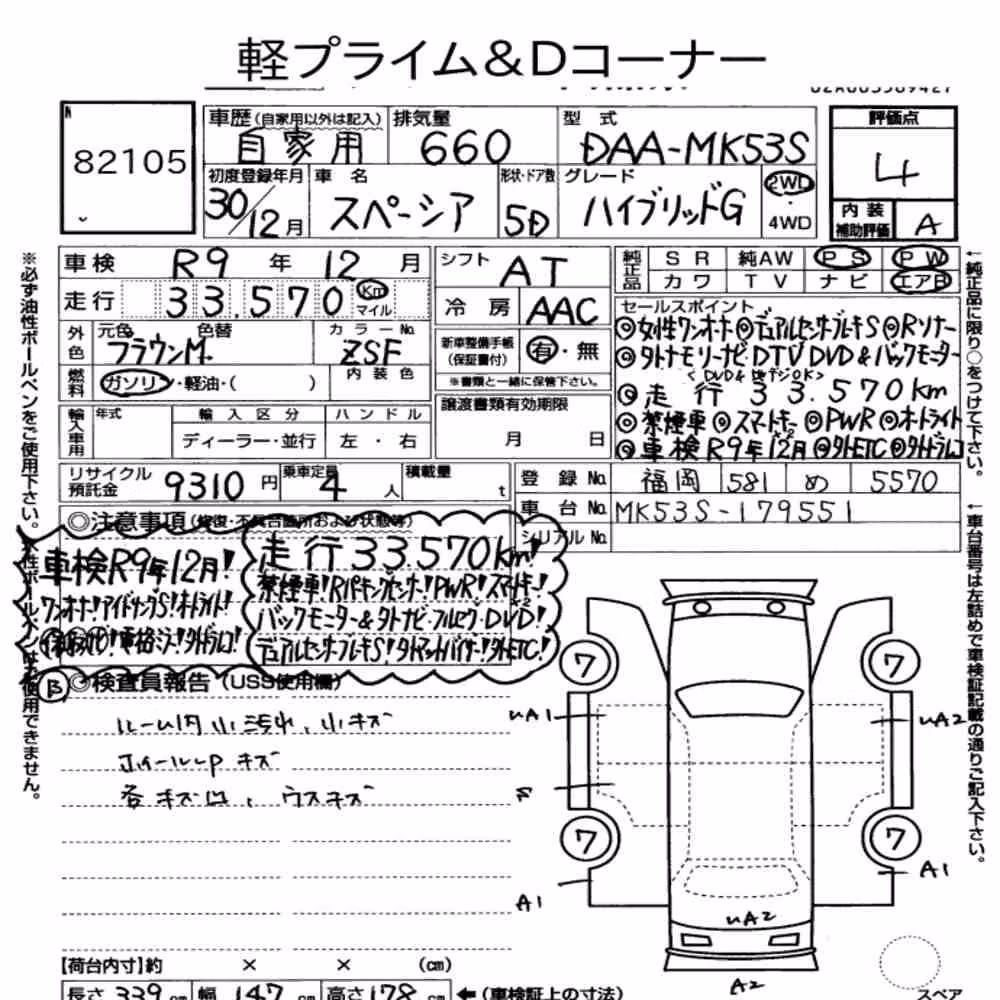 軽プライム＆Dコーナー
82105
車歴（自家用以外は記入）
自家用
排気量
660
型式
DAA-MK53S
評価点
4
内装
補助評価
A
初度登録年月
30/12月
車名
スペーシア
形状・ドア数
5D
グレード
ハイブリッドG
2WD
・
4WD
車検 R9年 12月
走行 33,570 Km マイル
外色
元色 色替
ブラウンM.
カラーNo.
ZSF
燃料
ガソリン・軽油・（ ）
内装色
輸入車用
年式
輸入区分
ハンドル
ディーラー・並行
左・右
シフト AT
冷房 AAC
新車整備手帳
（保証書付）
有・無
※書類と一緒に保管下さい。
譲渡書類有効期限
月 日
純正品
SR 純AW PS PW
カワ TV ナビ エアB
セールスポイント
◎女性ワンオーナー◎デュアルセンサーブレーキS◎Rソナー
◎タトナモリーナビDTVDVD&バックモニター
＜DVD&地デジOK＞
◎走行33.570Km
◎禁煙車◎スマートキー◎PWR◎オートライト
◎車検R9年12月◎タトETC◎タトドラレコ
リサイクル
預託金
9310円
乗車定員
4人
積載量
t
登録No. 福岡 581 め 5570
車台No. MK53S-179551
シリアルNo.
◎注意事項（修復・不具合箇所および状態等）
車検R9年12月!
ワンオーナー!アイドリングS!オートライト!
走行33,570Km!
禁煙車!Rパーキングセンサー!PWR!スマートキー!
バックモニター&タトナビ・フルセグ・DVD!
デュアルセンサーブレーキS!タトマットバイザー!タトETC!
B
◎検査員報告（USS使用欄）
ルーム内小汚れ、小キズ
Jホイールキズ
各キズ凹、ウスキズ
【荷台内寸】約 × × （cm）
長さ 339 cm 幅 147 cm 高さ 178 cm ←（車検証上の寸法）
7
7
7
7
UA1
UA2
S
A1
A1
UA2
A2
スペア
※必ず油性ボールペンをご使用下さい。
←純正品に限り○をつけて下さい。
←車台番号は左詰めで車検証記載の通りご記入下さい。